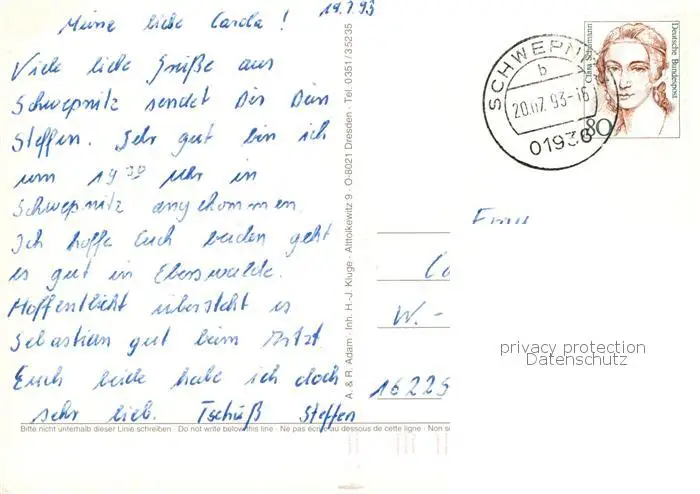 19.7.93
Meine liebe Carola!
Viele liebe Grüße aus
Schwepnitz sendet Dir Dein
Steffen. Sehr gut bin ich
um 19³⁰ Uhr in
Schwepnitz angekommen.
Ich hoffe Euch beiden geht
es gut in Eberswalde.
Hoffentlicht übersteht es
Sebastian gut beim Artzt.
Euch beide habe ich doch
sehr lieb. Tschüß Steffen
Bitte nicht unterhalb dieser Linie schreiben · Do not write below this line · Ne pas écrire au dessous de cette ligne · Non s
A. & R. Adam · Inh. H.-J. Kluge · Alttolkewitz 9 · O-8021 Dresden · Tel. 0351/35235
SCHWEPNITZ
b
20.07.93-16
01936
Clara Schumann
Deutsche Bundespost
80
Frau
Ca
W.-
16225
privacy protection
Datenschutz